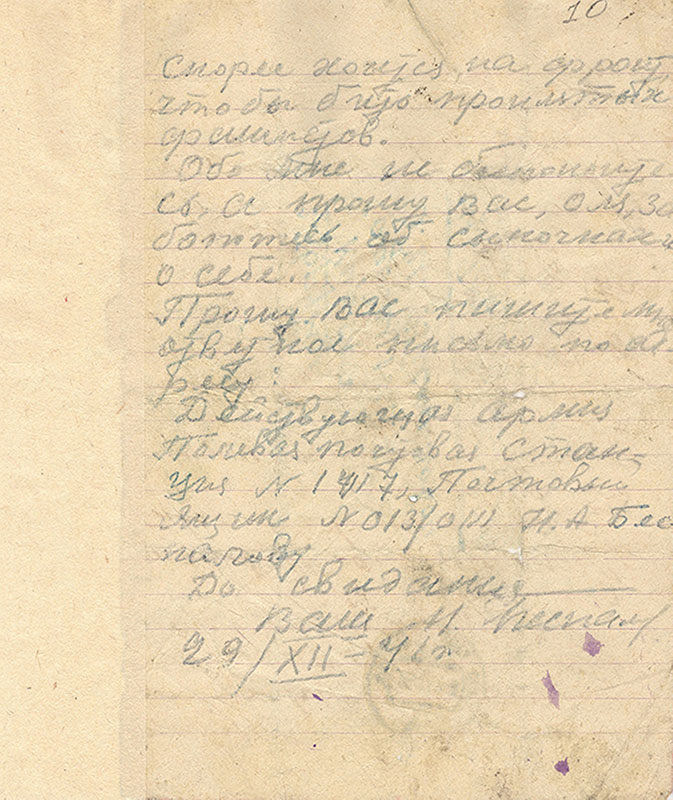 10
Скорее хочется на фронт
чтобы бить проклятых
фашистов.
Обо мне не беспокойте
сь, а прошу Вас, Оля, за
ботитесь об сыночках и
о себе.
Прошу Вас пишите мне
ответное письмо по ад
ресу:
Действующая армия
Полевая почтовая стан-
ция N 1417, Почтовый
ящик N 013/0111 И.А Бес
палову
До свидания
Ваш И Беспалов
29/XII-41г